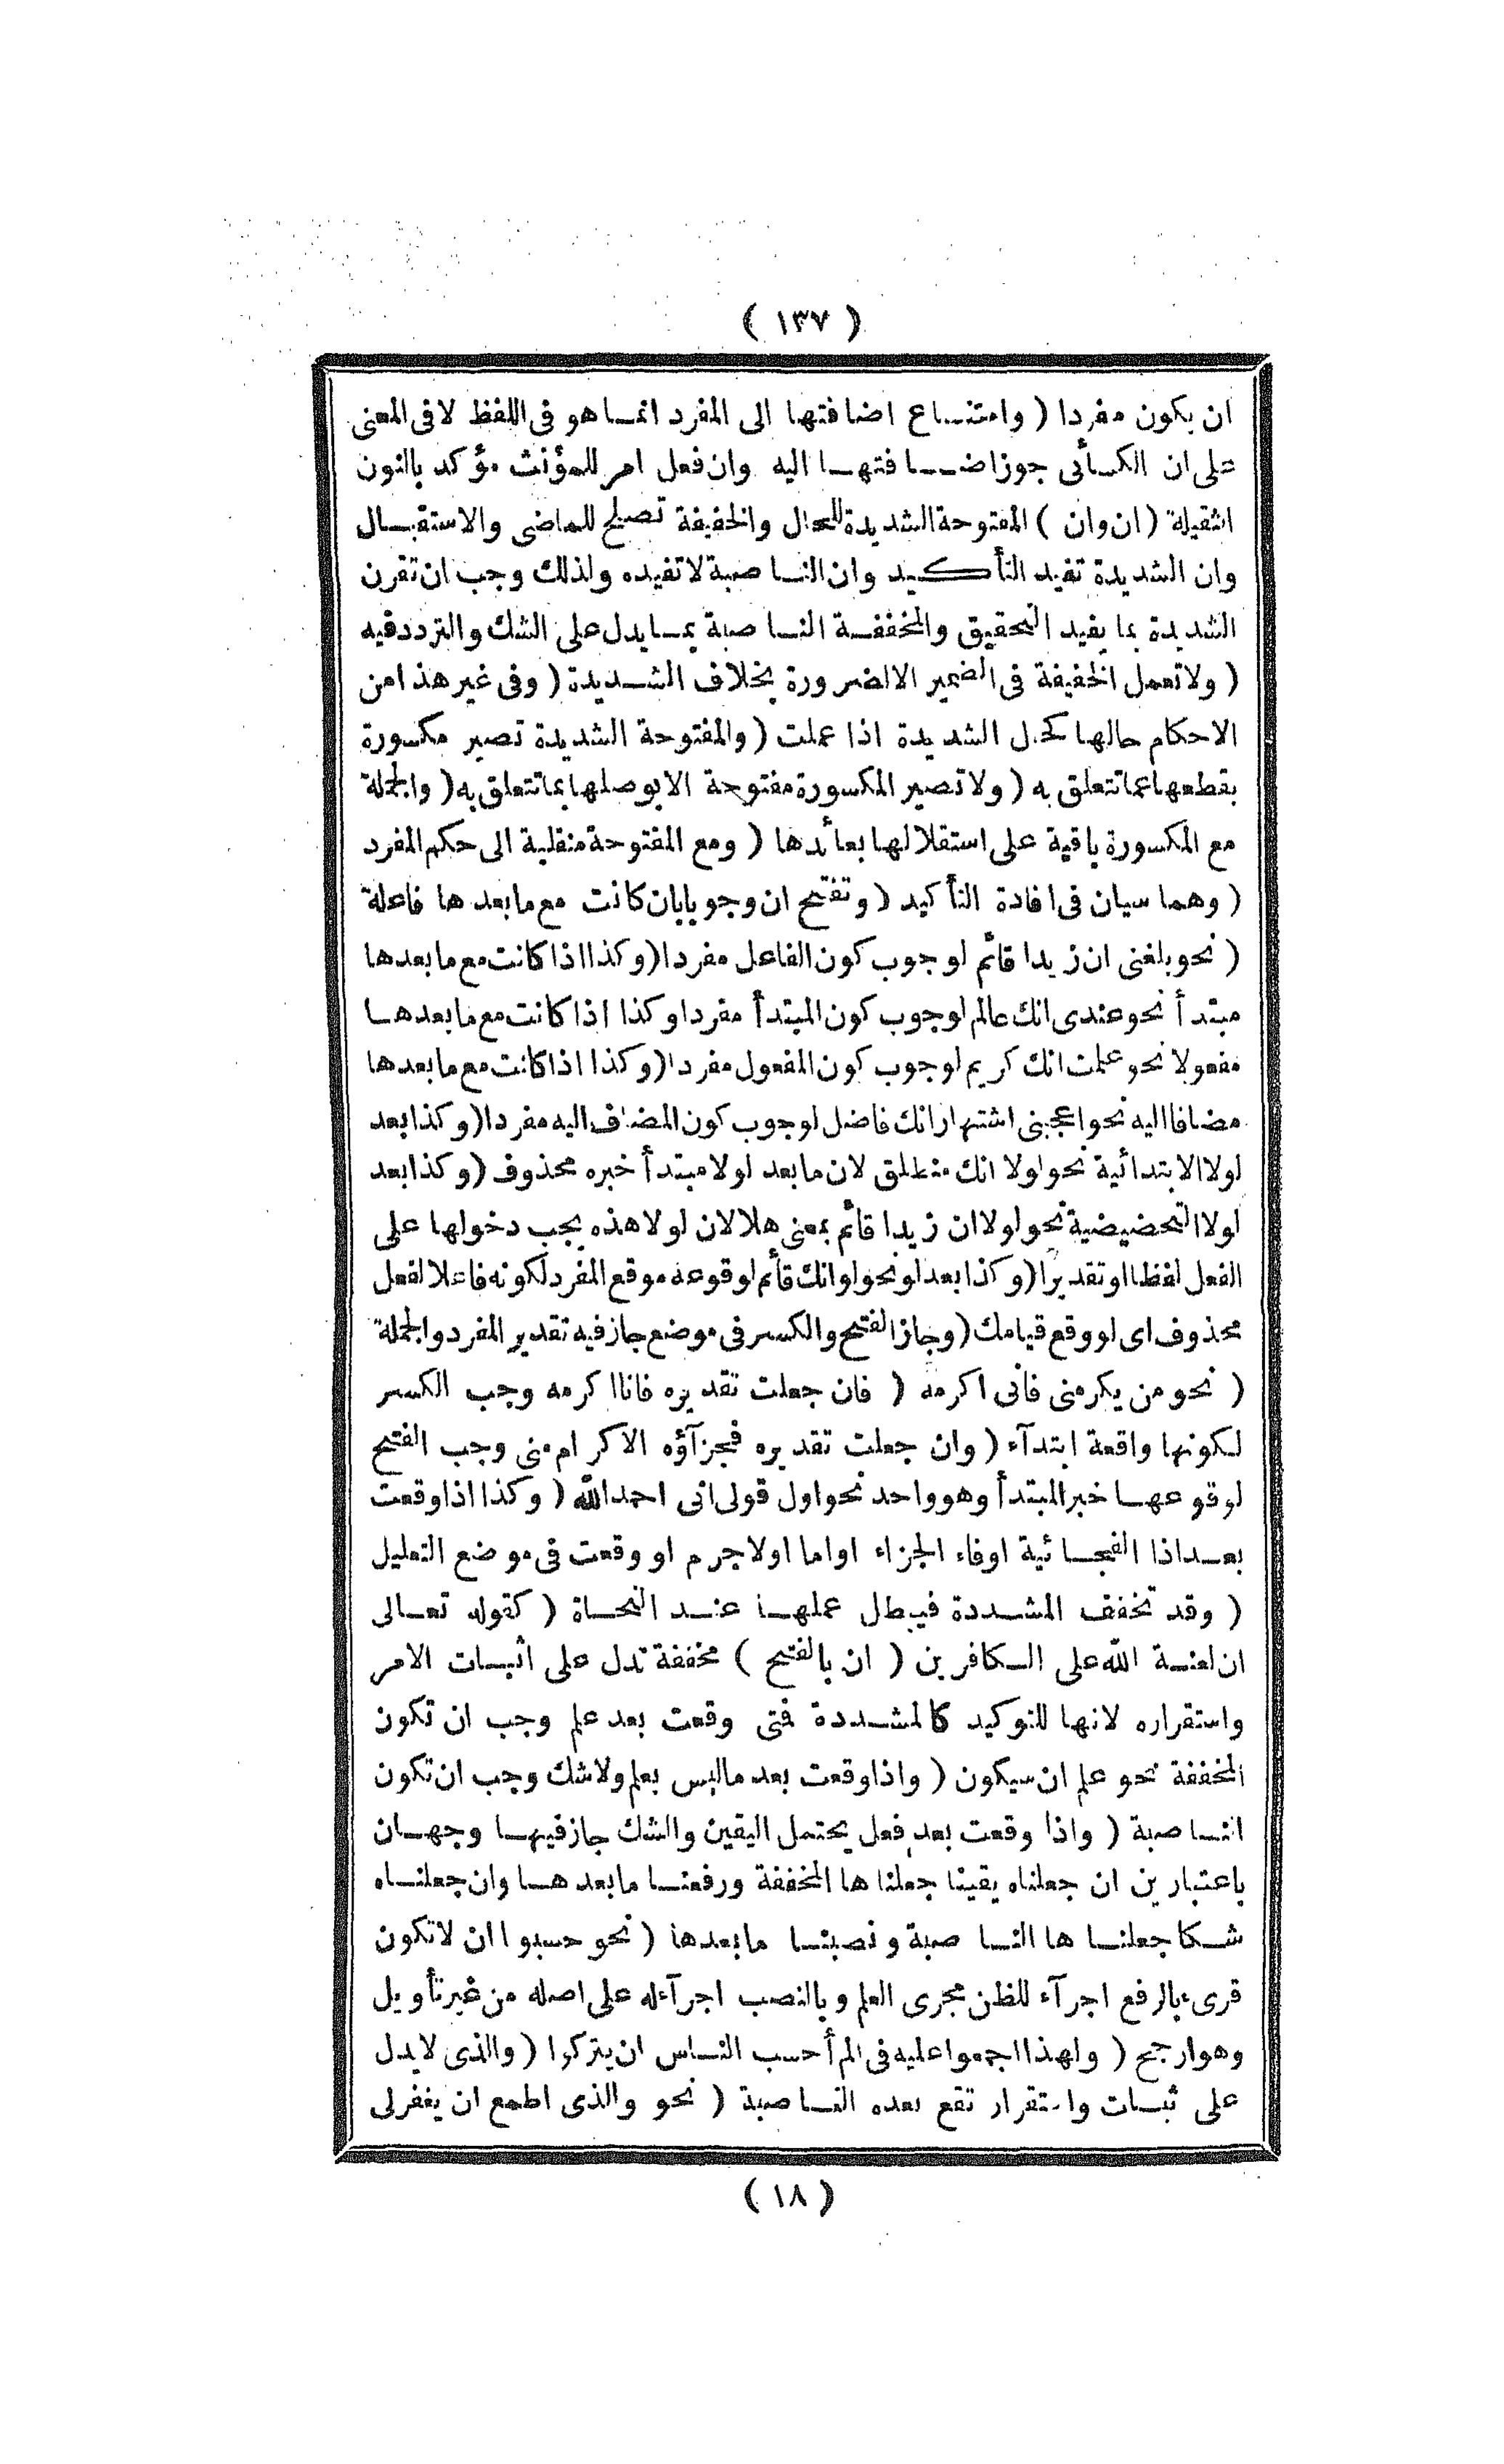 ( ١٣٧ )
ان يكون مفردا ( وامتنساع اضافتها الى المفرد انمساهو فى اللفظ لافى المعنى
على ان الكسأئى جوزاضافتها اليه وان فعل امر للمؤنث مؤكد بالنون
الثقيلة ( ان وان ) المفتوحة الشديدة للحال والخفيفة تصلح للماضى والاستقبال
وان الشديدة تفيد التأكيد وان الناصبة لاتفيده ولذلك وجب ان تقرن
الشديدة بما يفيد التحقيق والمخففة الناصبة بمايدل على الشك والترددفيه
( ولاتعمل الخفيفة فى الضمير الالضرورة بخلاف الشديدة ( وفى غير هذا من
الاحكام حالها كحال الشديدة اذا عملت ( والمفتوحة الشديدة تصير مكسورة
بقطعها عما تتعلق به ( ولا تصير المكسورة مفتوحة الابوصلها بما تتعلق به ( والجملة
مع المكسورة باقية على استقلالها بعائدها ( ومع المفتوحة منقلبة الى حكم المفرد
( وهما سيان فى افادة التأكيد ( وتفتح ان وجوبا بان كانت مع مابعدها فاعلة
( نحو بلغنى ان زيدا قائم لوجوب كون الفاعل مفردا ( وكذا اذا كانت مع مابعدها
مبتدأ نحو عندى انك عالم لوجوب كون المبتدأ مفردا وكذا اذا كانت مع مابعدها
مفعولا نحو علمت انك كريم لوجوب كون المفعول مفردا ( وكذا اذا كانت مع مابعدها
مضافا اليه نحو اعجبنى اشتهار انك فاضل لوجوب كون المضاف اليه مفردا ( وكذا بعد
لولا الابتدائية نحو لولا انك منطلق لان مابعد لولا مبتدأ خبره محذوف ( وكذا بعد
لولا التحضيضية نحو لولا ان زيدا قائم بمعنى هلا لان لولا هذه يجب دخولها على
الفعل لفظا او تقديرا ( وكذا بعد لو نحو لو انك قائم لوقوعه موقع المفرد لكونه فاعلا لفعل
محذوف اى لو وقع قيامك ( وجاز الفتح والكسر فى موضع جاز فيه تقدير المفرد والجملة
( نحو من يكرمنى فانى اكرمه ( فان جعلت تقديره فانا اكرمه وجب الكسر
لكونها واقعة ابتدآء ( وان جعلت تقديره فجزآؤه الاكرام منى وجب الفتح
لوقوعها خبر المبتدأ وهو واحد نحو اول قولى انى احمد الله ( وكذا اذا وقعت
بعد اذا الفجائية اوفاء الجزاء اواما اولاجرم او وقعت فى موضع التعليل
( وقد تخفف المشددة فيبطل عملها عند النحاة ( كقوله تعالى
ان لعنة الله على الكافرين ( ان بالفتح ) مخففة تدل على اثبات الامر
واستقراره لانها للتوكيد كالمشددة فتى وقعت بعد علم وجب ان تكون
المخففة نحو علم ان سيكون ( واذا وقعت بعد ماليس بعلم ولاشك وجب ان تكون
الناصبة ( واذا وقعت بعد فعل يحتمل اليقين والشك جاز فيها وجهان
باعتبارين ان جعلناه يقينا جعلناها المخففة ورفعنا مابعدها وان جعلناه
شكا جعلناها الناصبة ونصبنا مابعدها ( نحو حسبوا ان لاتكون
قرىء بالرفع اجرآء للظن مجرى العلم وبالنصب اجرآءله على اصله من غير تأويل
وهو ارجح ( ولهذا اجمعوا عليه فى الم أحسب الناس ان يتركوا ( والذى لايدل
على ثبات واستقرار تقع بعده الناصبة ( نحو والذى اطمع ان يغفرلى
( ١٨ )